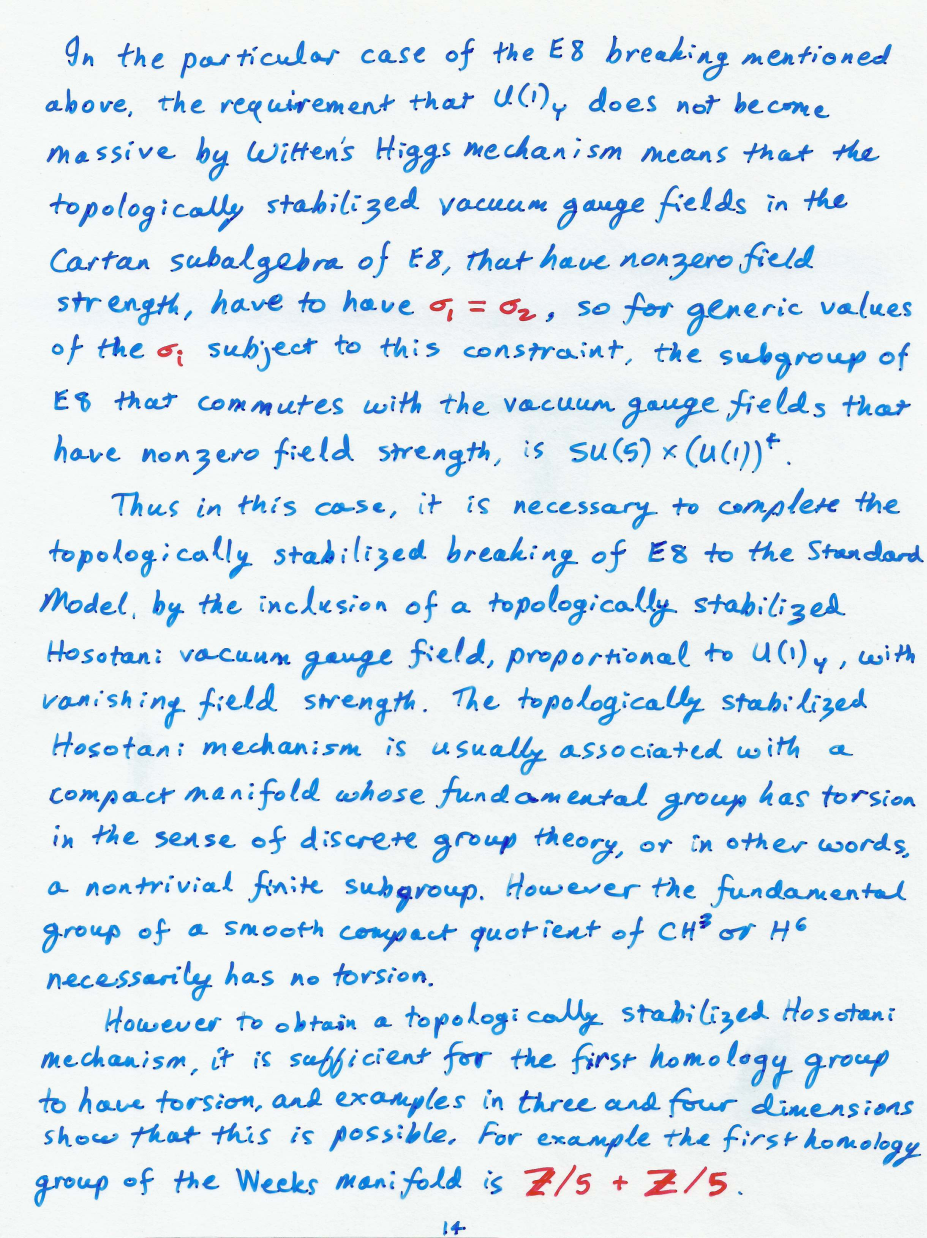 In the particular case of the E8 breaking mentioned
above, the requirement that U(1)Y does not become
massive by Witten's Higgs mechanism means that the
topologically stabilized vacuum gauge fields in the
Cartan subalgebra of E8, that have nonzero field
strength, have to have σ₁ = σ₂, so for generic values
of the σᵢ subject to this constraint, the subgroup of
E8 that commutes with the vacuum gauge fields that
have nonzero field strength, is SU(5) × (U(1))⁴.
Thus in this case, it is necessary to complete the
topologically stabilized breaking of E8 to the Standard
Model, by the inclusion of a topologically stabilized
Hosotani vacuum gauge field, proportional to U(1)Y, with
vanishing field strength. The topologically stabilized
Hosotani mechanism is usually associated with a
compact manifold whose fundamental group has torsion
in the sense of discrete group theory, or in other words,
a nontrivial finite subgroup. However the fundamental
group of a smooth compact quotient of CH³ or H⁶
necessarily has no torsion.
However to obtain a topologically stabilized Hosotani
mechanism, it is sufficient for the first homology group
to have torsion, and examples in three and four dimensions
show that this is possible. For example the first homology
group of the Weeks manifold is Z/5 + Z/5.
14